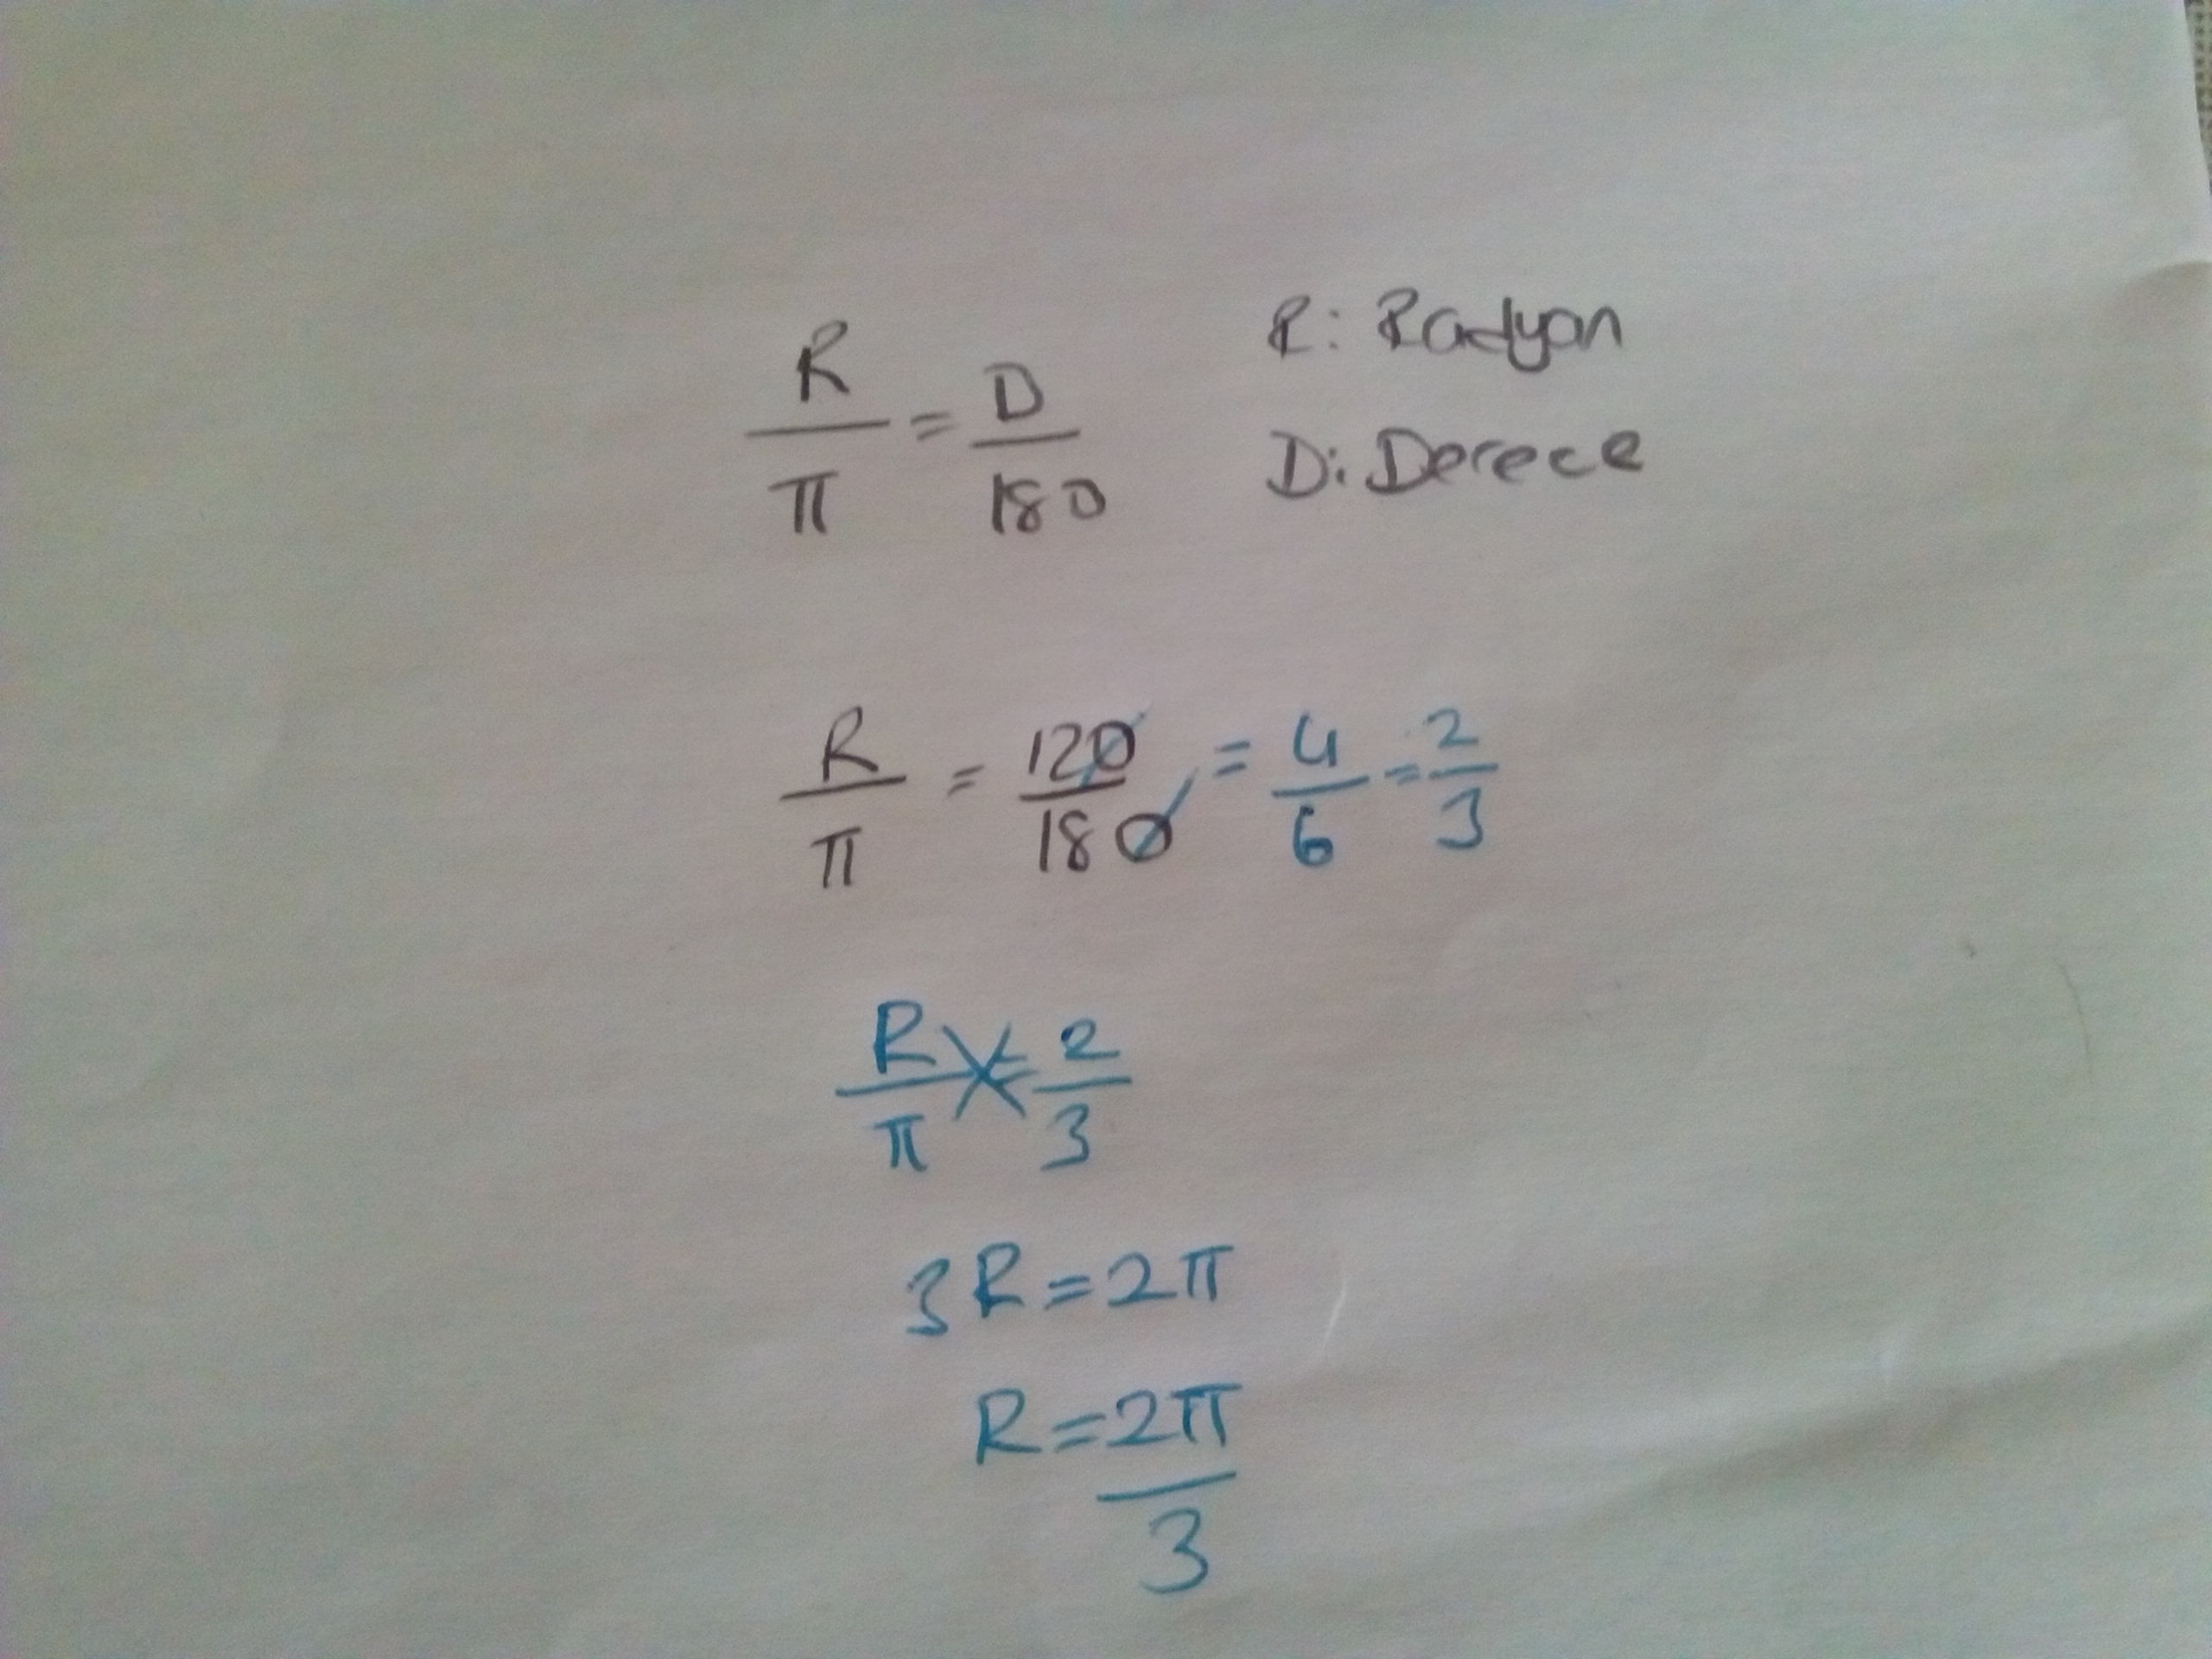 R/π = D/180 R: Radyan
D: Derece
R/π = 120/180 = 4/6 = 2/3
R/π = 2/3
3R = 2π
R = 2π/3